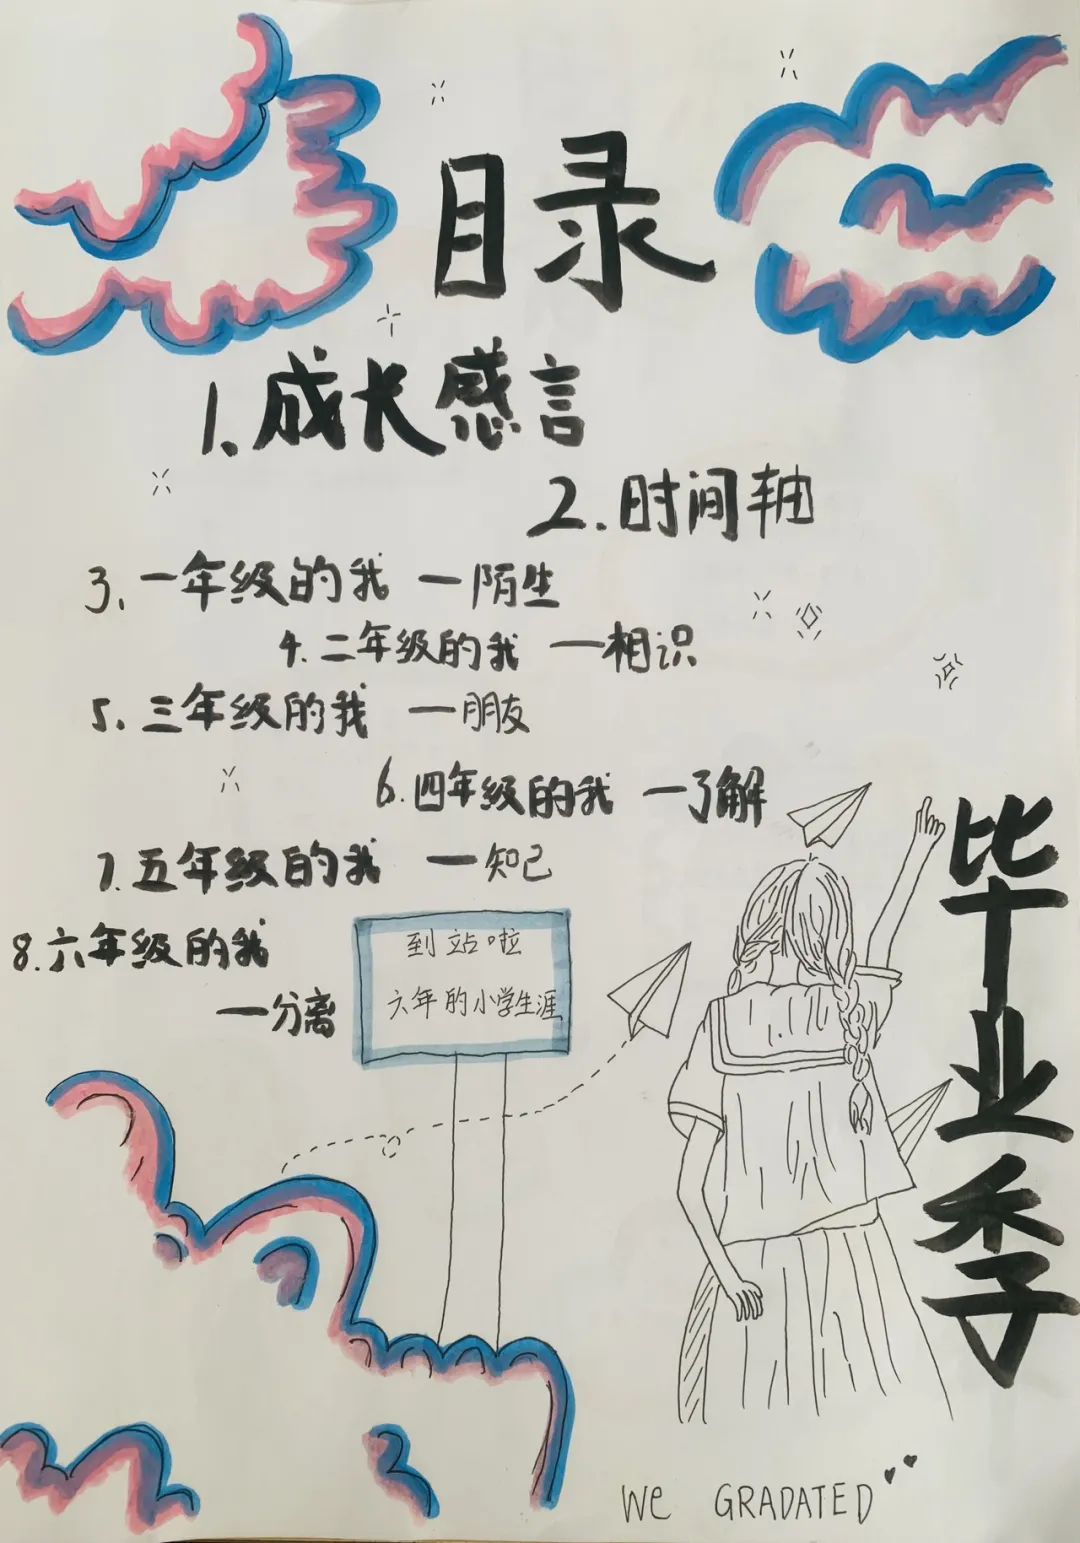 目录
1、成长感言
2.时间轴
3、一年级的我 一陌生
4.二年级的我 一相识
5、三年级的我 一朋友
6.四年级的我 一了解
7.五年级的我 一知己
8.六年级的我
一分离
到站啦
六年的小学生涯
毕业季
We GRADATED